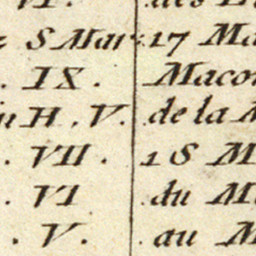 VI. des
S Mar. 17 Ma
. IX. Maco
u H. V. de la M
. VII. 18 M
. VI du M
. V. au M